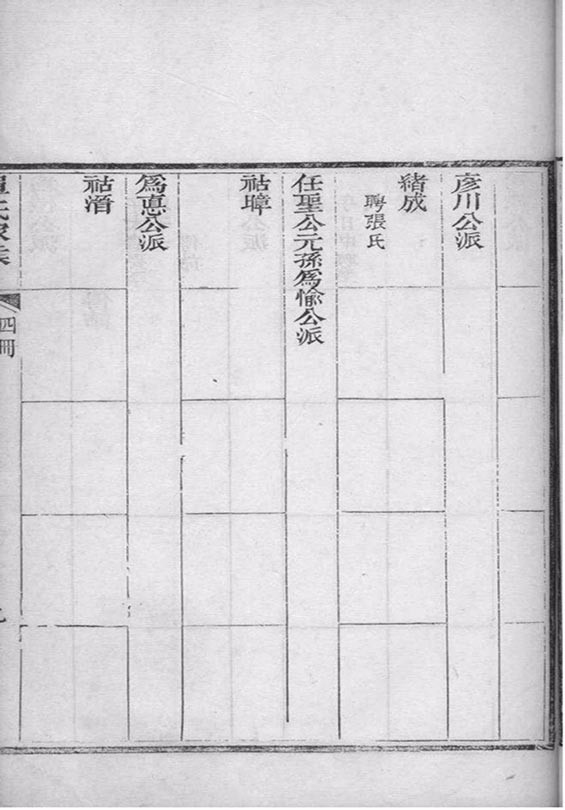 彦川公派
緒成
聘張氏
任聖公元孫爲愉公派
祜暐
爲惪公派
祜湑
氏家
四冊